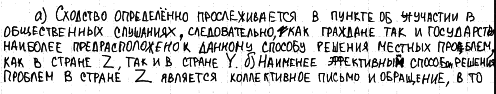 а) Сходство определённо прослеживается в пункте об участии в
общественных слушаниях, следовательно, как граждане так и государство
наиболее предрасположено к данному способу решения местных проблем,
как в стране Z, так и в стране Y. б) Наименее эффективный способ решения
проблем в стране Z является коллективное письмо и обращение, в то